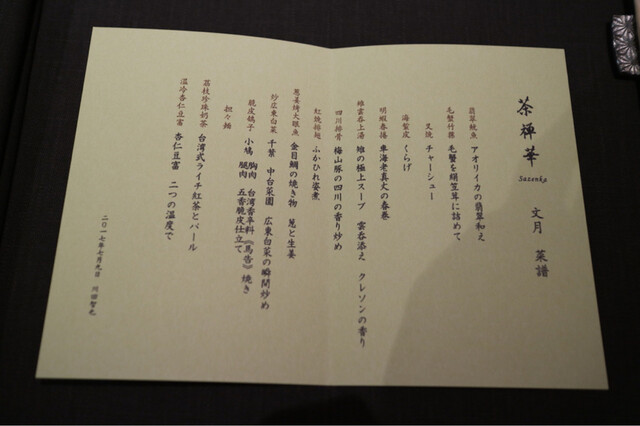 茶禅華
Sazenka
文月 菜譜
翡翠魷魚 アオリイカの翡翠和え
毛蟹竹笙 毛蟹を絹笠茸に詰めて
叉焼 チャーシュー
海蜇皮 くらげ
明蝦春捲 車海老真丈の春巻
雉雲呑上湯 雉の極上スープ 雲呑添え クレソンの香り
四川排骨 梅山豚の四川の香り炒め
紅焼排翅 ふかひれ姿煮
葱姜大眼魚 金目鯛の焼き物 葱と生姜
炒広東白菜 千葉 中台菜園 広東白菜の瞬間炒め
脆皮鴿子 小鳩 胸肉 台湾香辛料《馬告》焼き
腿肉 五香脆皮仕立て
担々麺
茘枝珍珠奶茶 台湾式ライチ紅茶とパール
温冷杏仁豆富 杏仁豆富 二つの温度で
二〇一七年七月九日 川田智也